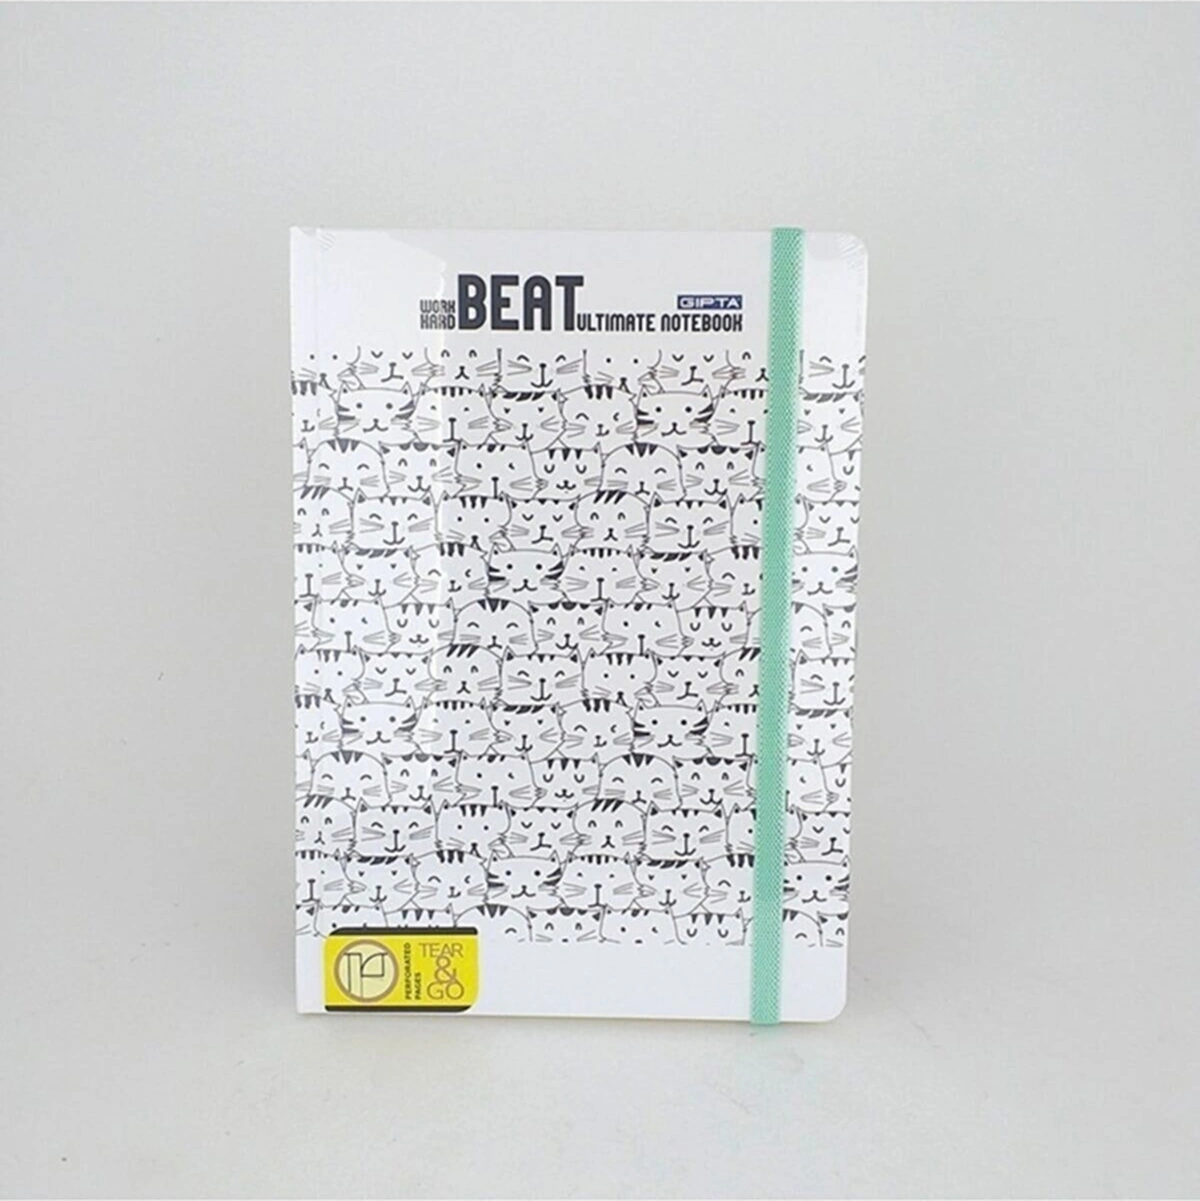 WORK
HARD
BEAT
GIPTA
ULTIMATE NOTEBOOK
PERFORATED
PAGES
TEAR
&
GO